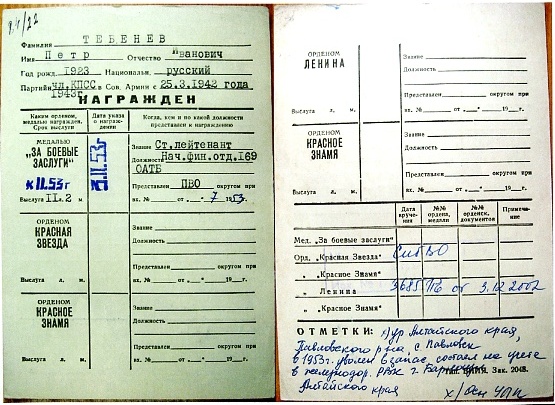 94/22
Фамилия ТЕБЕНЕВ
Имя Петр Отчество Иванович
Год рожд. 1923 Национальн. русский
Партийн. чл.КПСС в Сов. Армии с 25.3.1942 года
1943г
НАГРАЖДЕН
Каким орденом, медалью награжден. Срок выслуги
Дата указа о награждении
Когда, кем и по какой должности представлен к награждению
МЕДАЛЬЮ
„ЗА БОЕВЫЕ ЗАСЛУГИ"
XII.53г
Выслуга 11 л. 2 м.
XII.53г
Звание Ст.лейтенант
Должность Нач.фин.отд.169
ОАТБ
Представлен ПВО округом при
вх. № от „ " 7 1953.
ОРДЕНОМ
КРАСНАЯ ЗВЕЗДА
Выслуга л. м.
Звание
Должность
Представлен округом при
вх. № от „ " 19 г.
ОРДЕНОМ
КРАСНОЕ ЗНАМЯ
Выслуга л. м.
Звание
Должность
Представлен округом при
вх. № от „ " 19 г.
ОРДЕНОМ
ЛЕНИНА
Выслуга л. м.
Звание
Должность
Представлен округом при
вх. № от „ " 19 г.
ОРДЕНОМ
КРАСНОЕ ЗНАМЯ
Выслуга л. м.
Звание
Должность
Представлен округом при
вх. № от „ " 19 г.
Дата вручения
№№ ордена, медали
№№ орденск. документов
Примечание
Мед. „За боевые заслуги"
Орд. „Красная Звезда" СибВО
„ „Красное Знамя"
„ Ленина 3685 от 3.12.2002
„ „Красное Знамя"
ОТМЕТКИ: х/ур Алтайского края,
Павловского р-на, с Павловск
в 1953г. уволен в запас, состоял на учете
в железнодор. РВК г. Барнаул
Зак. 2048.
Алтайского края